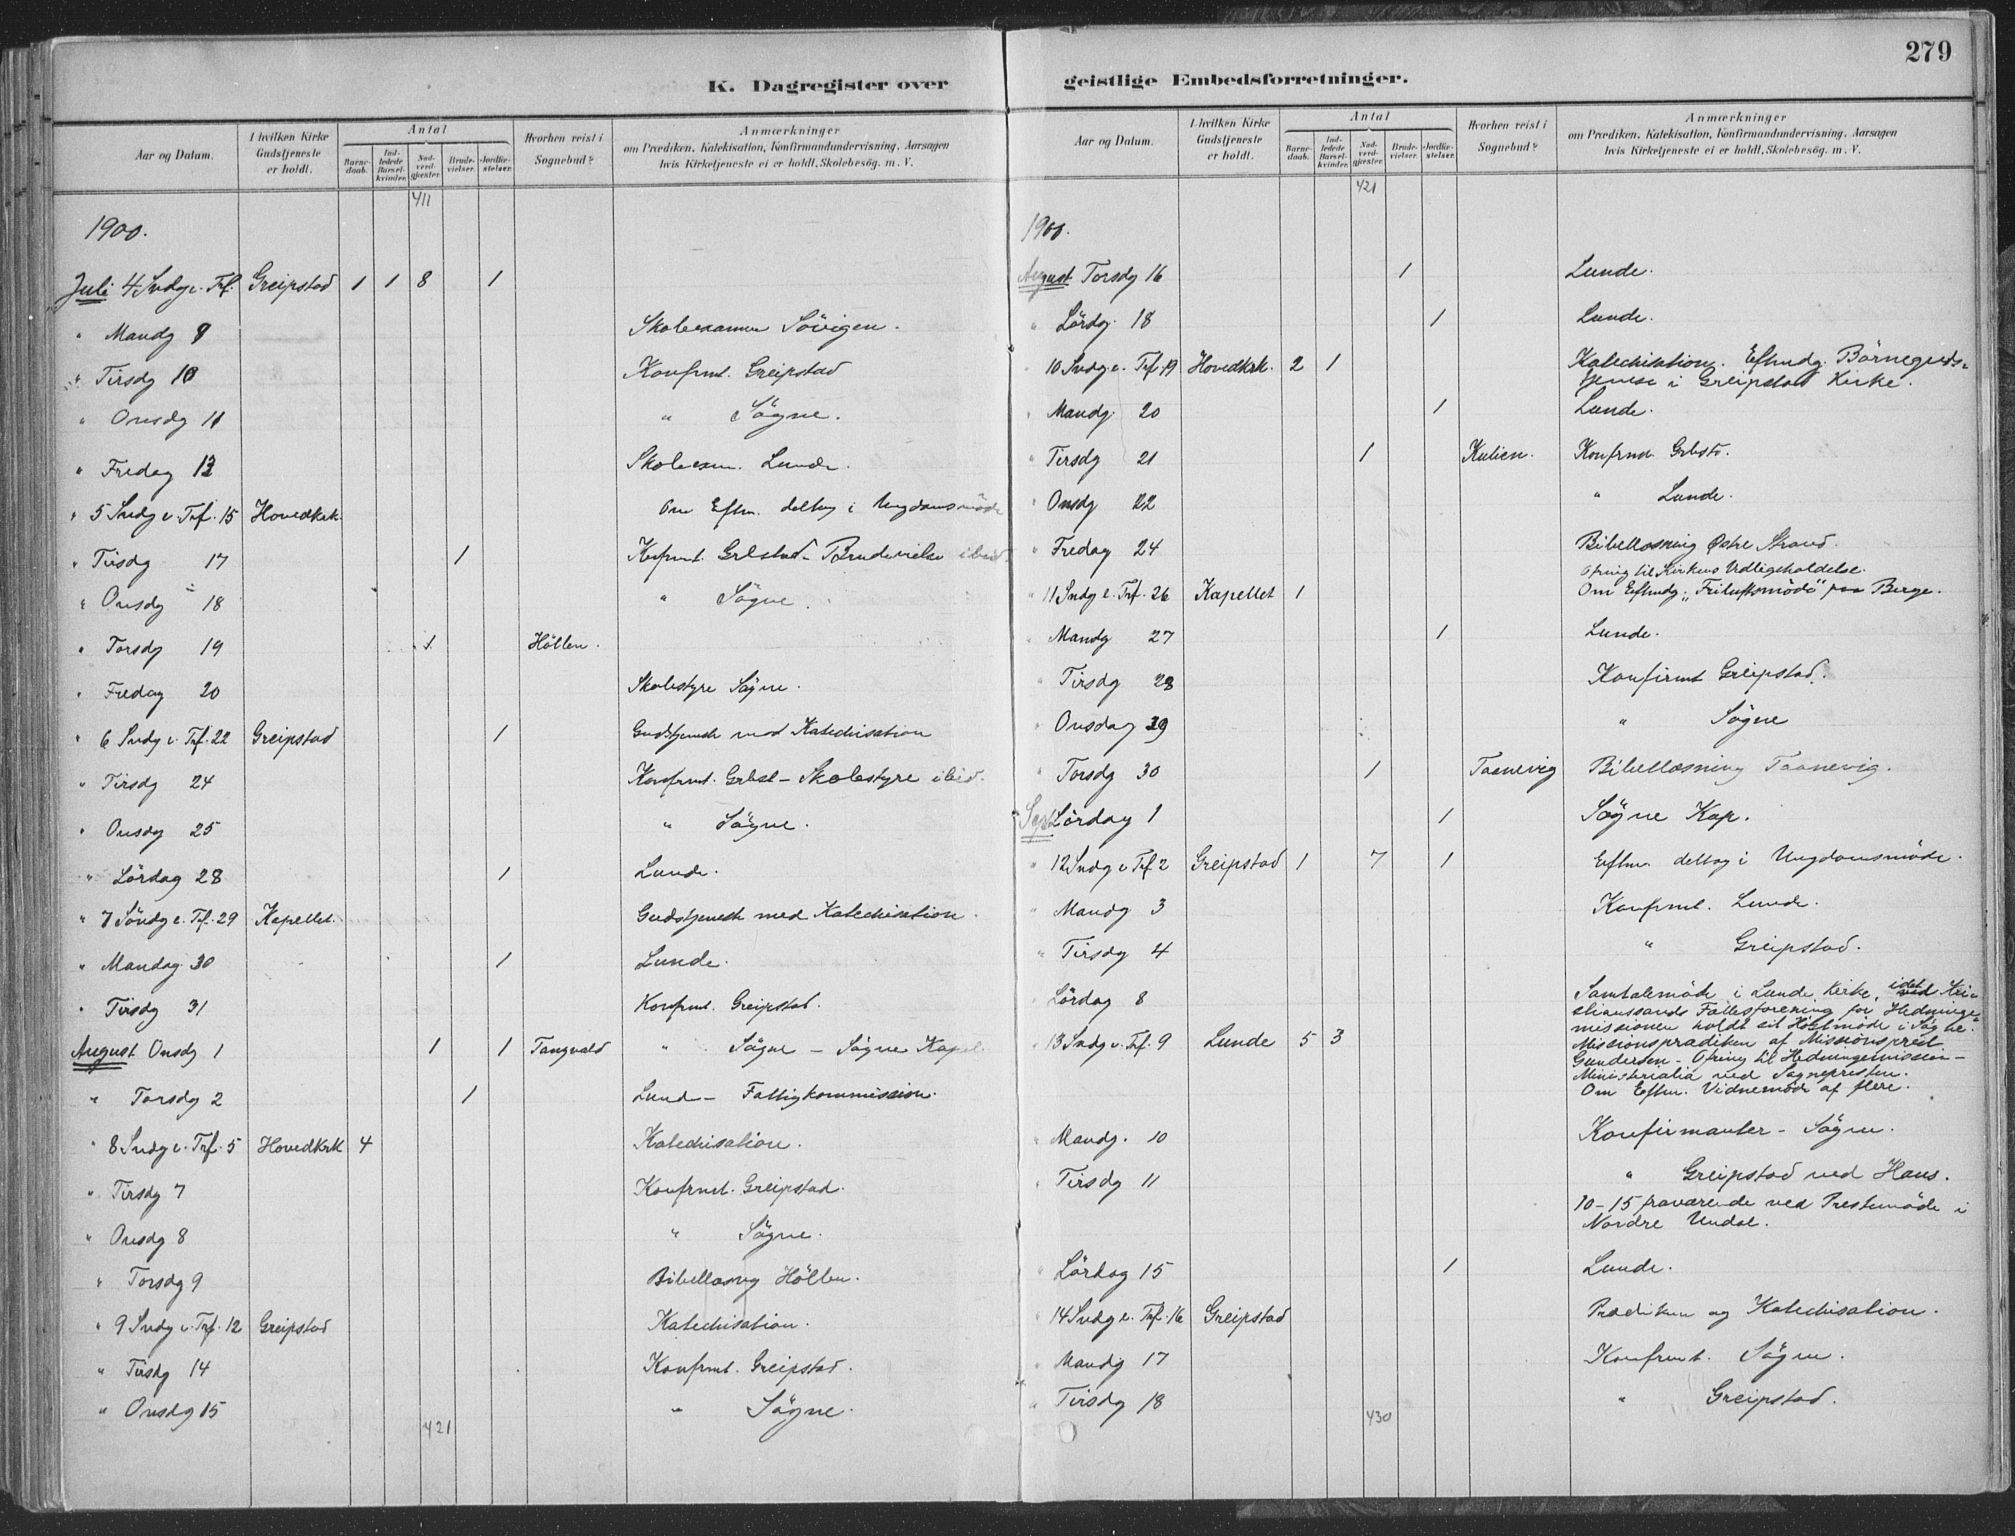 279
K. Dagregister over
Aar og Datum.
I hvilken Kirke Gudstjeneste er holdt.
Antal
Barnedaab.
Indledede Barselkvinder.
Nadverdgjester.
Brudevielser.
Jordfæstelser.
Hvorhen reist i Sognebud?
Anmærkninger
om Prædiken, Katekisation, Konfirmandundervisning, Aarsagen hvis Kirketjeneste ei er holdt, Skolebesøg. m. V.
411
1900.
Juli 4 Sndg e. Trf. Greipstad 1 1 8 1
" Mandg 9 Skoleexamen Sövigen.
" Tirsdg 10 Konfrmt. Greipstad
" Onsdg 11 " Sögne.
" Fredag 13 Skoleexm. Lunde.
" 5 Sndg e. Trf. 15 Hovedkrk. Om Eftm. deltog i Ungdomsmöde
" Tirsdg 17 1 Konfrmt. Grbstad - Brudevielse ibid.
" Onsdg 18 " Sögne.
" Torsdg 19 1 Höllen.
" Fredag 20 Skolestyre Sögne.
" 6 Sndg e. Trf. 22 Greipstad 1 Gudstjeneste med Katechisation
" Tirsdg 24 Konfrmt. Grbst - Skolestyre ibid.
" Onsdg 25 " Sögne.
" Lördag 28 1 Lunde.
" 7 Söndg e. Trf. 29 Kapellet. Gudstjeneste med Katechisation.
" Mandag 30 1 Lunde.
" Tirsdg 31 Konfrmt. Greipstad.
August Onsdg 1 1 1 Tangvald " Sögne - Sögne Kapel.
" Torsdg 2 1 Lund - Fattigkommission.
" 8 Sndg e. Trf. 5 Hovedkrk 4 Katechisation.
" Tirsdg 7 Konfrmt. Greipstad.
" Onsdg 8 " Sögne.
" Torsdg 9 Bibellæsng Höllen.
" 9 Sndg e. Trf. 12 Greipstad Katechisation.
" Tirsdg 14 Konfrmt. Greipstad.
" Onsdg 15 " Sögne.
421
geistlige Embedsforretninger.
Aar og Datum.
I hvilken Kirke Gudstjeneste er holdt.
Antal
Barnedaab.
Indledede Barselkvinder.
Nadverdgjester.
Brudevielser.
Jordfæstelser.
Hvorhen reist i Sognebud?
Anmærkninger
om Prædiken, Katekisation, Konfirmandundervisning, Aarsagen hvis Kirketjeneste ei er holdt, Skolebesøg. m. V.
421
1900.
August Torsdg 16 1 Lunde.
" Lördg. 18 1 Lunde.
" 10 Sndg e. Trf. 19 Hovedkrk. 2 1 Katechisation. Eftmdg. Börneguds-
tjeneste i Greipstad Kirke.
" Mandg. 20 1 Lunde.
" Tirsdg 21 1 Kulien. Konfrmd. Grbstd.
" Onsdg 22 " Lunde.
" Fredag 24 Bibellæsning Østre Strand.
Ofring til Kirkens Vedligeholdelse.
" 11 Sndg e. Trf. 26 Kapellet 1 Om Eftmdg. „Friluftsmöde" paa Berge.
" Mandg 27 1 Lunde.
" Tirsdg 28 Konfirmt Greipstad.
" Onsdag 29 " Sögne
" Torsdg 30 1 Taanevig Bibellæsning Taanevig.
Sept Lördag 1 1 Sögne Kap.
" 12 Sndg e Trf 2 Greipstad 1 7 1 Eftm. deltog i Ungdomsmöde.
" Mandg 3 Konfrmt. Lunde.
" Tirsdg 4 " Greipstad.
" Lördag 8 Samtalemöde i Lunde Kirke, idet Kri-
stianssands Fællesforening for Hedninge-
missionen holdt sit Höstmöde i Sögne.
" 13 Sndg e. Trf. 9 Lunde 5 3 Missionsprædiken af Missionsprest
Gundersen - Ofring til Hedningemission -
Ministerialia ved Sognepresten.
Om Eftm. Vidnemöde af flere.
" Mandg. 10 Konfirmanter - Sögne.
" Tirsdg 11 " Greipstad ved Haus.
10-15 fraværende ved Prestemöde i
Nordre Undal.
" Lördag 15 1 Lunde.
" 14 Sndg e. Trf. 16 Greipstad Prædiken og Katechisation.
" Mandg 17 Konfrmt. Sögne.
" Tirsdg 18 " Greipstad.
430